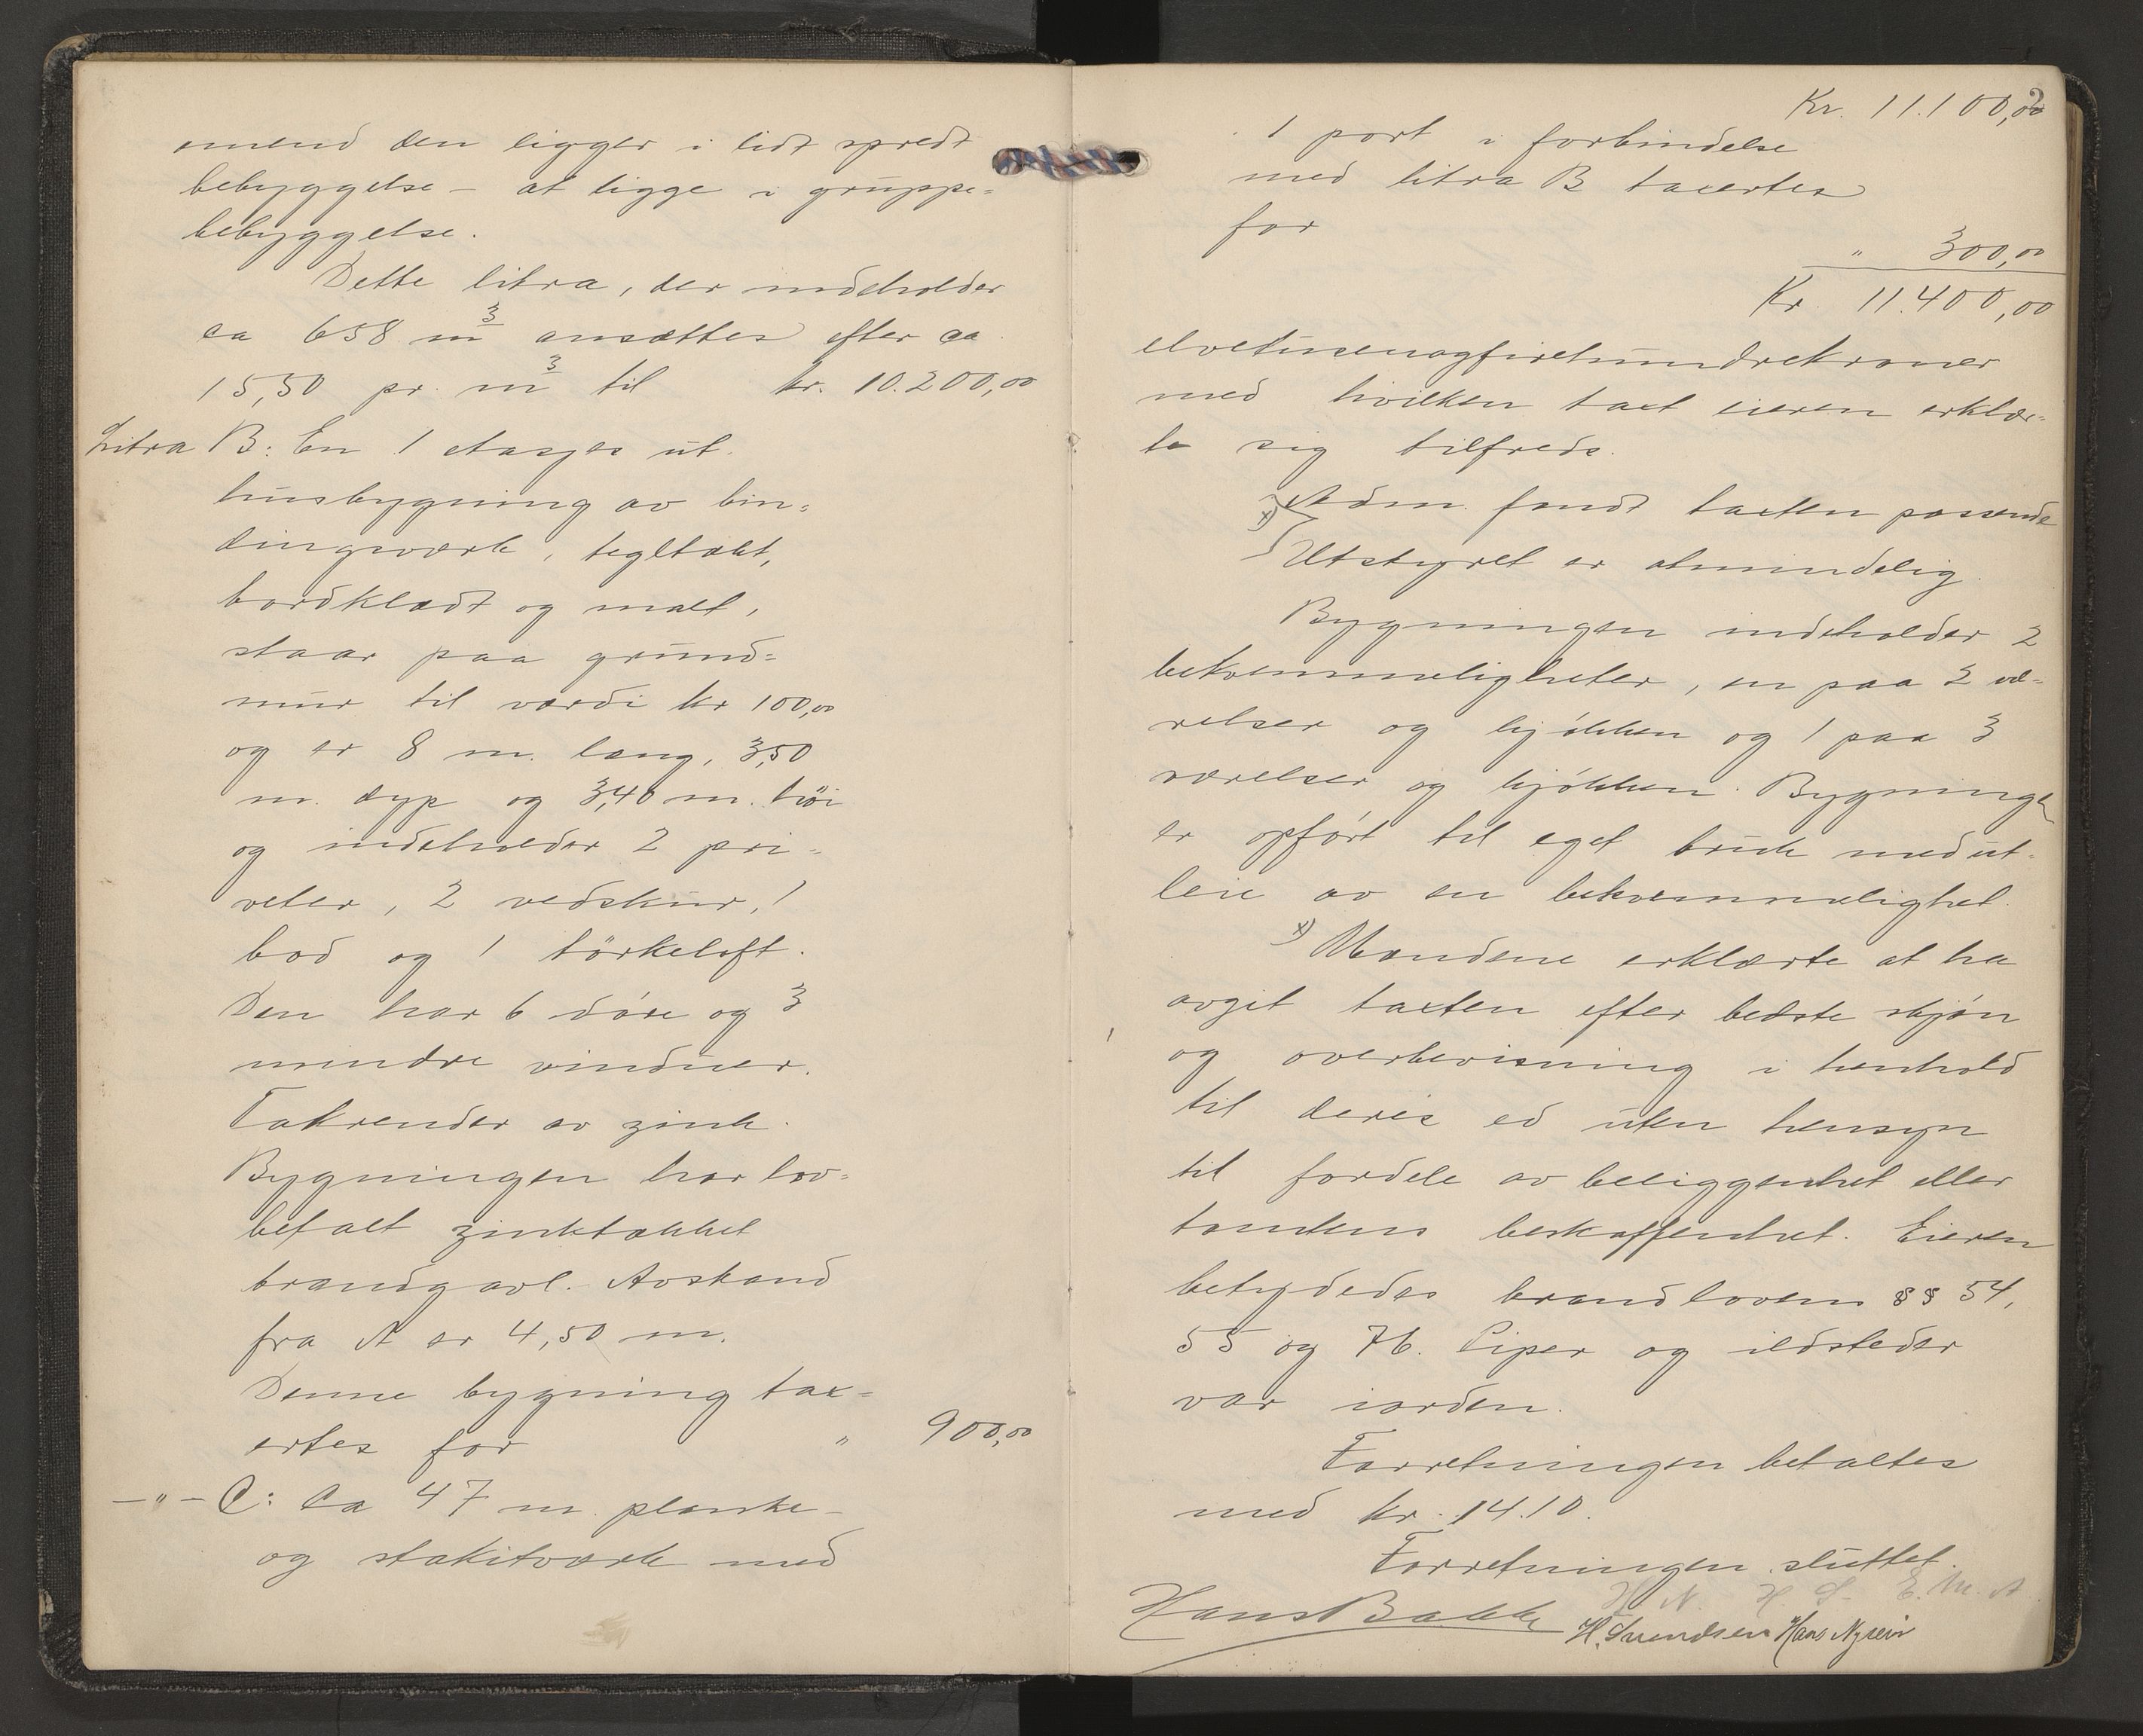 omend den ligger i lidt spredt
bebyggelse – at ligge i gruppe=
bebyggelse.
Dette litra, der indeholder
ca 658 m3 ansættes efter ca
15,50 pr. m3 til kr. 10.200,00
Litra B: En 1 etasjes ut
husbygning av bin=
dingsværk, tegltækt,
bordklædt og malt,
staar paa grund=
mur til værdi kr 100,00
og er 8 m. lang, 3,50
m. dyp og 3,40 m. høi
og indeholder 2 pri=
veter, 2 vedskur, 1
bod og 1 törkeloft.
Den har 6 döre og 3
mindre vinduer.
Takrender av zink.
Bygningen har lov=
befalt zinktækket
brandgavl. Avstand
fra A er 4,50 m.
Denne bygning tax=
ertes for " 900,00
—"— C: Ca 47 m planke-
og stakitværk med
2
Kr. 11.100,00
1 port i forbindelse
med litra B taxertes
for
" 300,00
Kr. 11.400,00
elvetusenogfirehundrekroner
med hvilken taxt eieren erklær=
te sig tilfreds.
x) Adm. fandt taxten passende
Utstyret er almindelig.
Bygningen indeholder 2
bekvemmeligheter, en paa 2 væ=
relser og kjökken og 1 paa 3
værelser og kjökken. Bygningen
er opfört til eget bruk med ut=
leie av en bekvemmelighet.
x) Mændene erklærte at ha
avgit taxten efter bedste skjön
og overbevisning i henhold
til deres ed uten hensyn
til fordele av beliggenhet eller
tomtens beskaffenhet. Eieren
betydedes brandlovens §§ 54,
55 og 76. Piper og ildsteder
var iorden.
Forretningen betaltes
med kr. 14.10.
Forretningen sluttet.
H N. H S. E. M. A
Hans Bakke H. Svendsen Hans Nysein